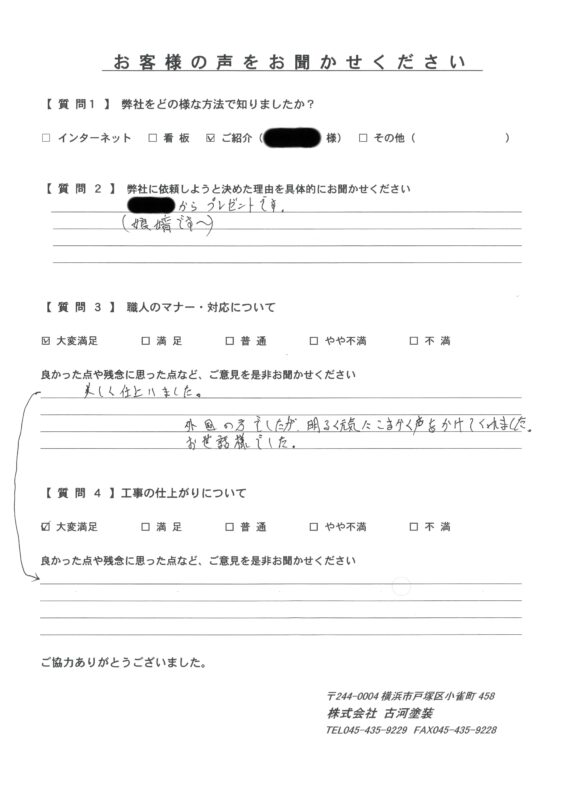 お客様の声をお聞かせください
【 質 問 1 】 弊社をどの様な方法で知りましたか？
□ インターネット □ 看 板 ☑ ご紹介（ 様） □ その他（ ）
【 質 問 2 】 弊社に依頼しようと決めた理由を具体的にお聞かせください
からプレゼントです。
(娘婿です〜)
【 質 問 3 】 職人のマナー・対応について
☑ 大変満足 □ 満 足 □ 普 通 □ やや不満 □ 不 満
良かった点や残念に思った点など、ご意見を是非お聞かせください
美しく仕上りました。
外国の方でしたが、明るく元気にこまかく声をかけてくれました。
お世話様でした。
【 質 問 4 】工事の仕上がりについて
☑ 大変満足 □ 満 足 □ 普 通 □ やや不満 □ 不 満
良かった点や残念に思った点など、ご意見を是非お聞かせください
ご協力ありがとうございました。
〒244-0004 横浜市戸塚区小雀町 458
株式会社 古河塗装
TEL045-435-9229 FAX045-435-9228